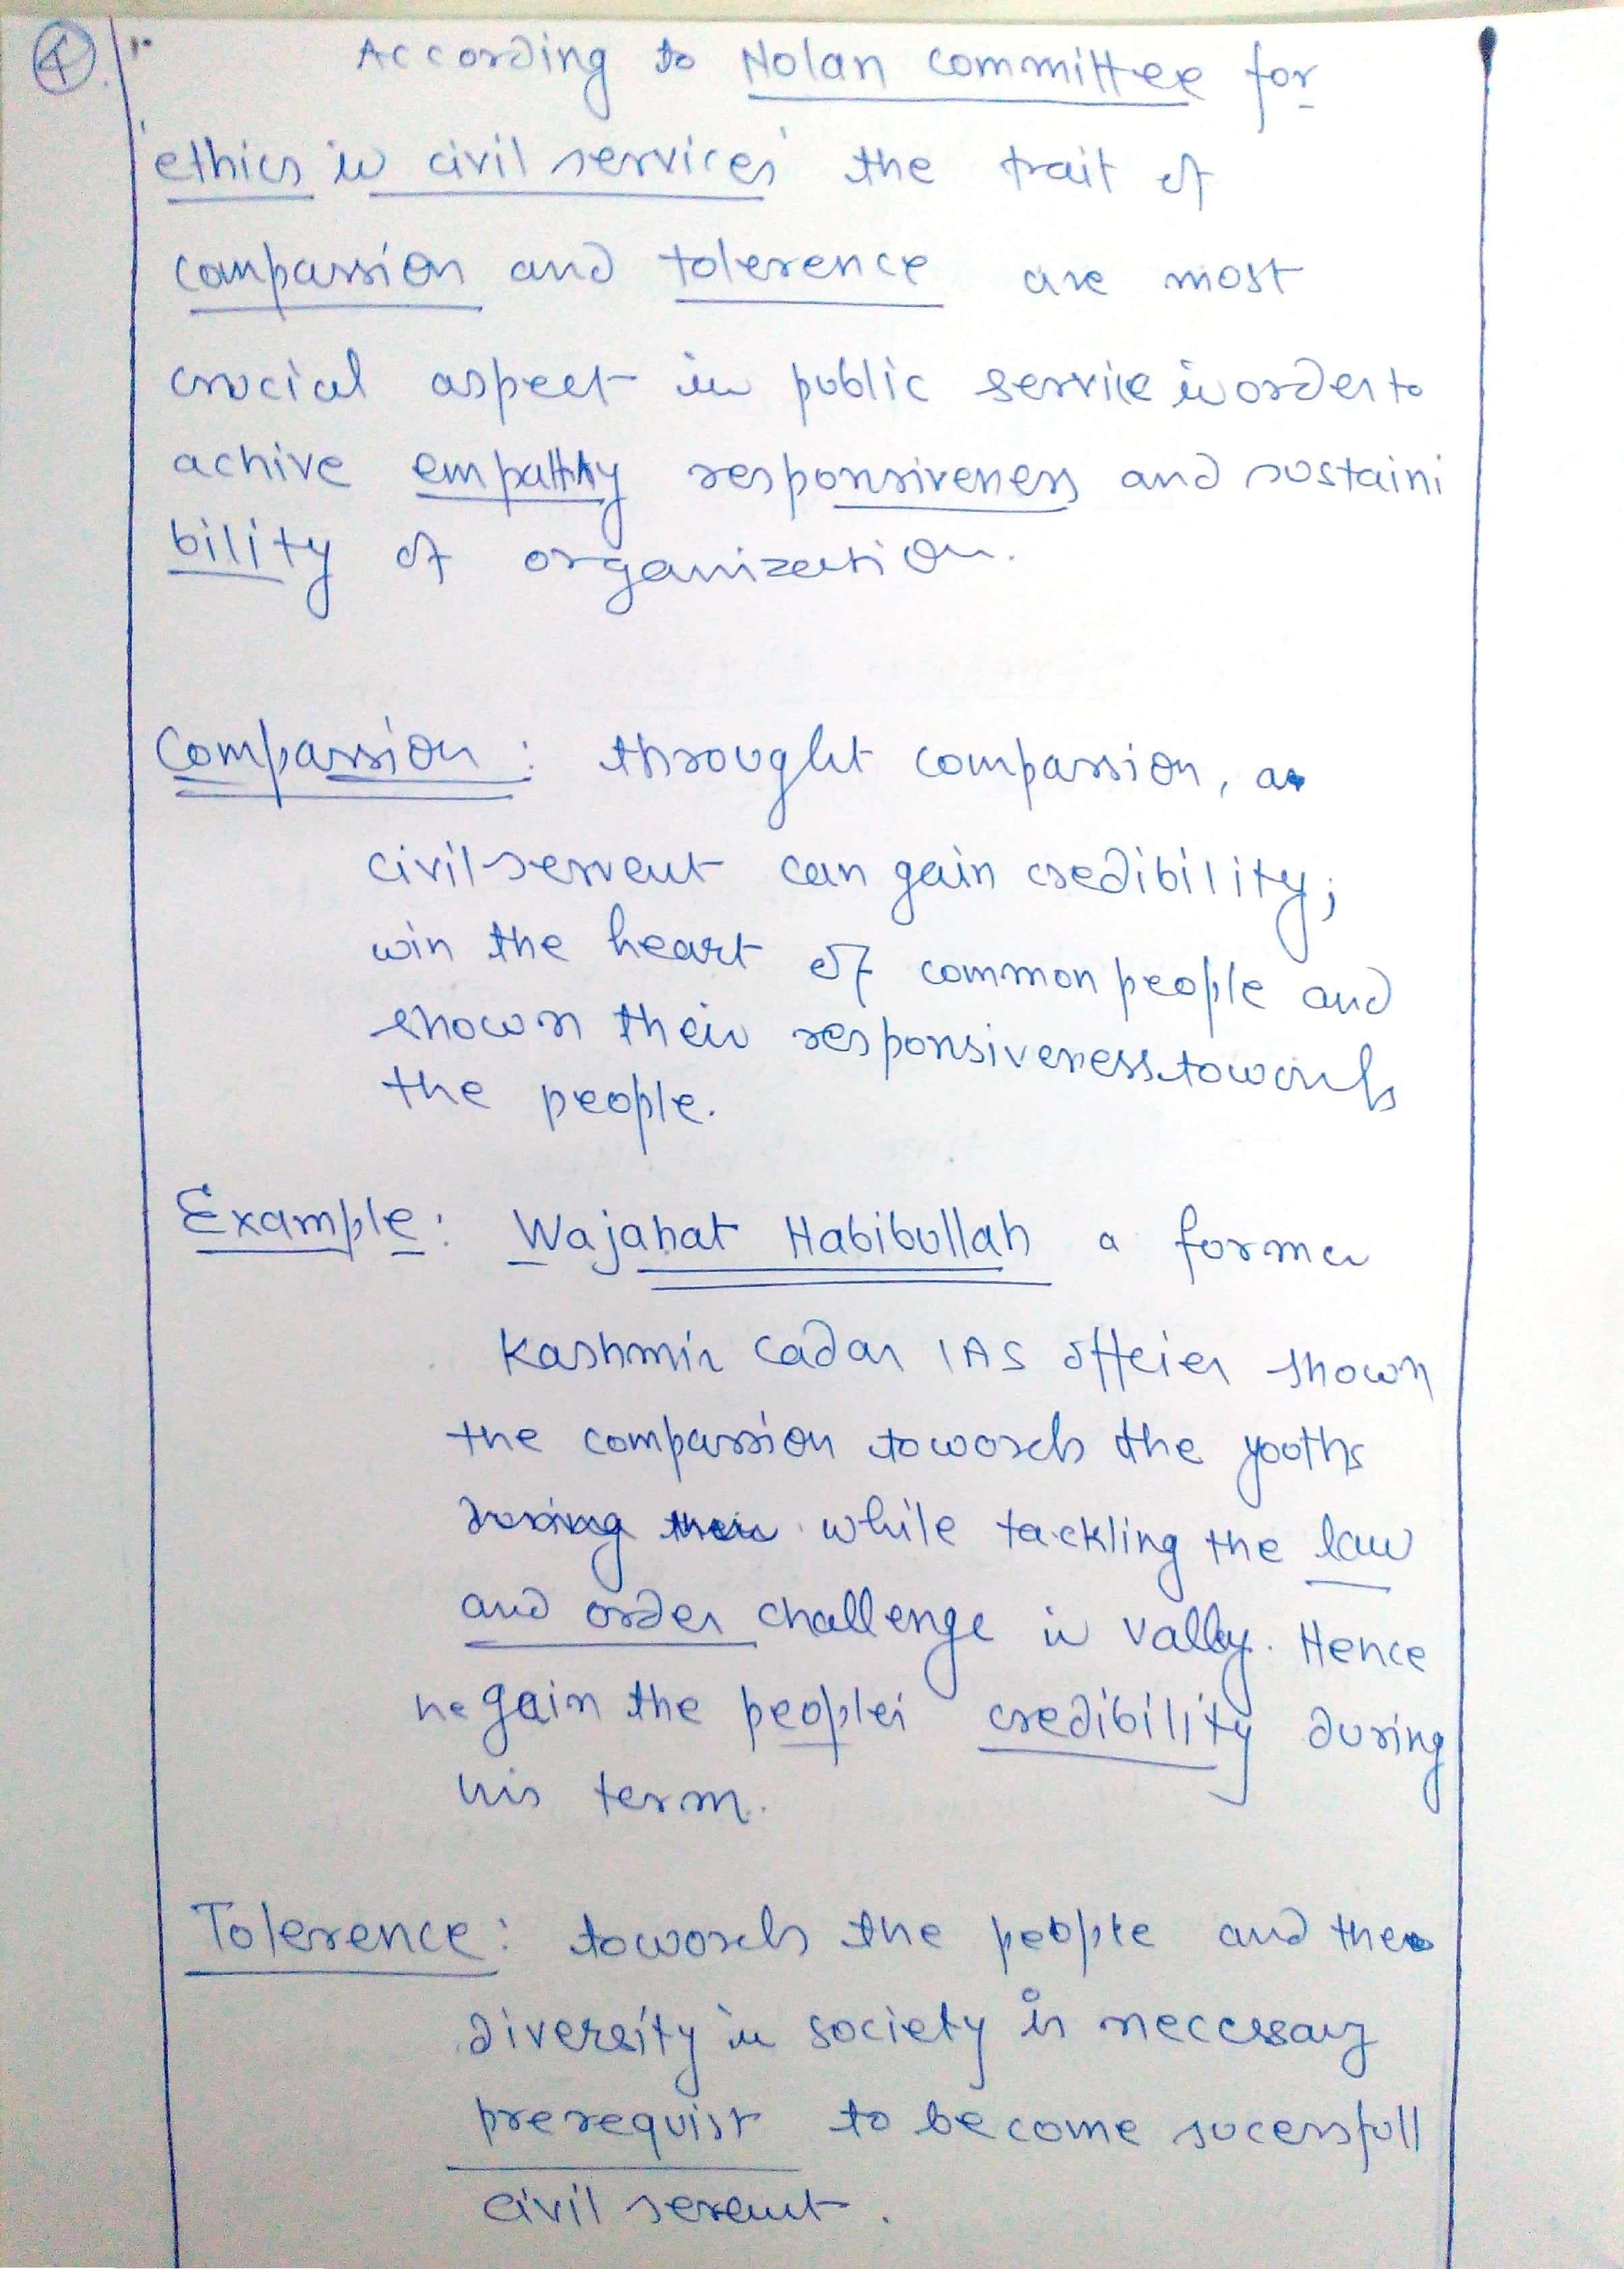 4. According to Nolan committee for
'ethics in civil services' the trait of
compassion and tolerence are most
crucial aspect in public service in order to
achive empathy responsiveness and sustaini
bility of organization.
Compassion: throught compassion, a
civil servent can gain credibility;
win the heart of common people and
shown their responsiveness towards
the people.
Example: Wajahat Habibullah a former
Kashmir cadar IAS officer shown
the compassion towords the yooths
while tackling the law
and order challenge in vally. Hence
he gain the peoples credibility during
his term.
Tolerence: towords the people and the
diversity in society is neccessary
prerequist to become sucessfull
civil servent.